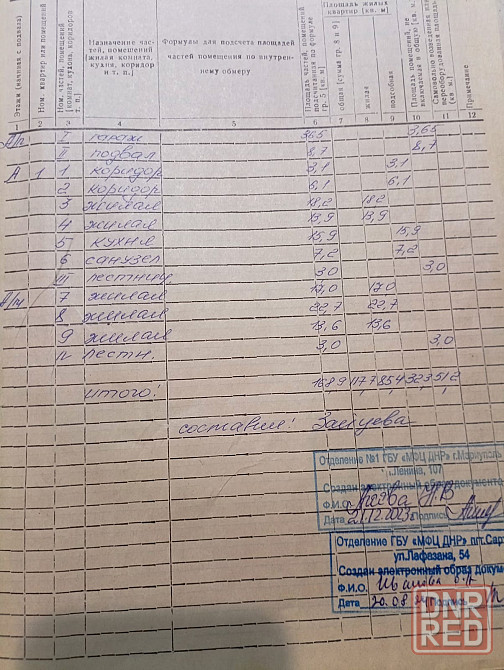 Этажи (начиная с подвала)
Ном. квартир или помещений
Ном. частей, помещений (комнат, кухонь, коридоров и т. п.)
Назначение частей, помещений (жилая комната, кухня, коридор и т. п.)
Формулы для подсчета площадей частей помещения по внутреннему обмеру
Площадь частей, помещений подсчитанная по формуле гр. 5 (кв. м)
Площадь жилых квартир (кв. м)
общая (сумма гр. 8 и 9)
жилая
подсобная
Примечание
1 2 3 4 5 6 7 8 9 10 11 12
I гараж 36,5 36,5
II подвал 8,7 8,7
А 1 1 коридор 3,1 3,1
2 коридор 6,1 6,1
3 жилая 18,2 18,2
4 жилая 13,9 13,9
5 кухня 15,9 15,9
6 санузел 7,2 7,2
III лестниц. 3,0 3,0
7 жилая 17,0 17,0
8 жилая 22,7 22,7
9 жилая 13,6 13,6
IV лестн. 3,0 3,0
итого: 168,9 117,7 85,4 32,3 51,2
составил:
Отделение №1 ГБУ «МФЦ ДНР» г.Мариуполь
г.Ленина, 107
Создан электронный образ документа
Ф.И.О.
Дата 21.12.2023г. Подпись
Отделение ГБУ «МФЦ ДНР» пгт.Сар
ул.Лафазана, 54
Создан электронный образ докум
Ф.И.О.
Дата 20.08.24 Подпись
DNR
RED